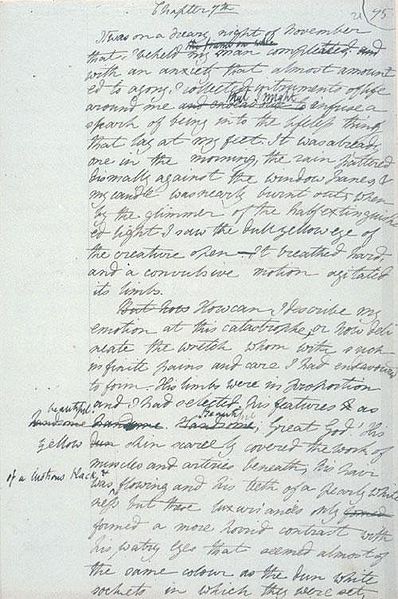 Chapter 7th
It was on a dreary night of November
the frame on whic
that I beheld my man completed and
with an anxiety that almost amount
ed to agony I collected instruments of life
that I might
around me infuse a
spark of being into the lifeless thing
that lay at my feet. It was already
one in the morning, the rain pattered
dismally against the window panes, &
my candle was nearly burnt out, when
by the glimmer of the half extinguish
ed light I saw the dull yellow eye of
the creature open—It breathed hard,
and a convulsive motion agitated
its limbs.
But how How can I describe my
emotion at this catastrophe, or how deli
neate the wretch whom with such
infinite pains and care I had endeavoured
to form. His limbs were in proportion
and I had selected his features & as
beautiful beautiful
handsome handsome Handsome; Great God! His
yellow dun skin scarcely covered the work of
muscles and arteries beneath; his hair
of a lustrous black, &
was flowing and his teeth of a pearly white
ness but these luxuriances only
formed a more horrid contrast with
his watry eyes that seemed almost of
the same colour as the dun white
sockets in which they were set,